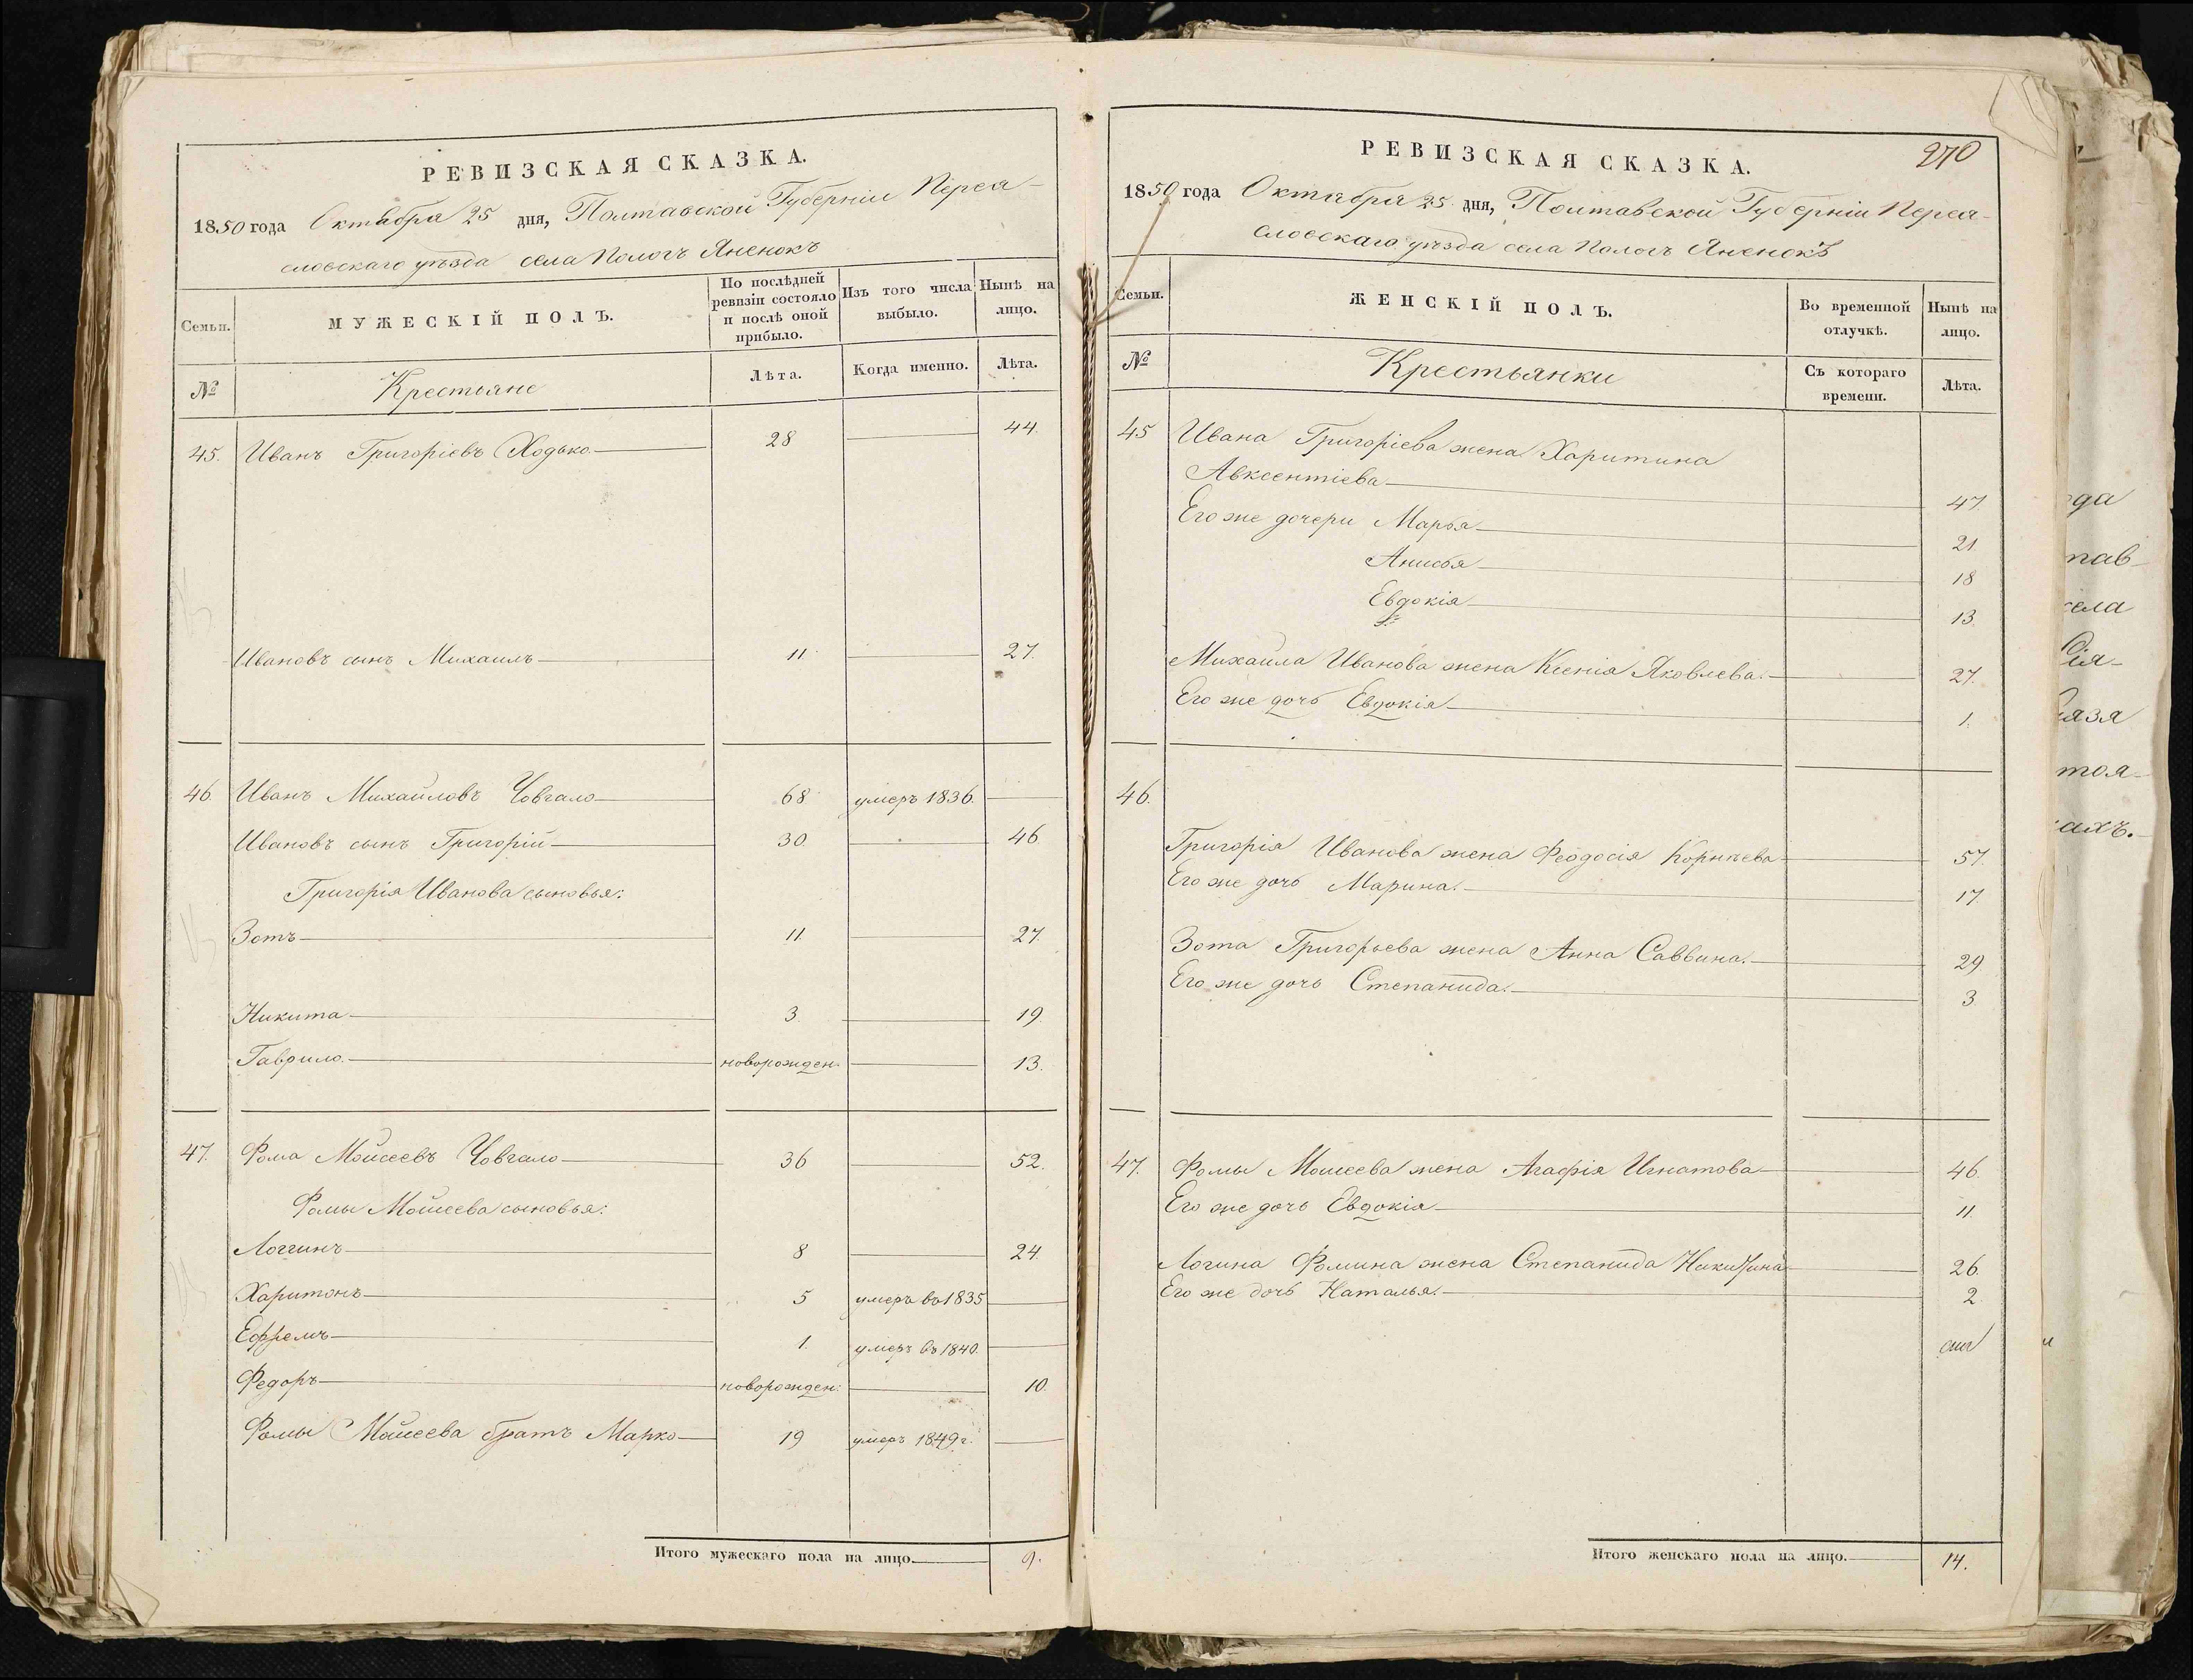 РЕВИЗСКАЯ СКАЗКА.
1850 года Октября 25 дня, Полтавской Губерніи Перея-
словскаго уѣзда села Пологъ Яненокъ
Семьи.
МУЖЕСКІЙ ПОЛЪ.
По послѣдней ревизіи состояло и послѣ оной прибыло.
Изъ того числа выбыло.
Нынѣ на лицо.
№
Крестьяне
Лѣта.
Когда именно.
Лѣта.
45. Иванъ Григоріевъ Ходько 28 44.
Ивановъ сынъ Михаилъ 11 27.
46. Иванъ Михайловъ Човгало 68 умеръ 1836.
Ивановъ сынъ Григорій 30 46
Григорія Иванова сыновья:
Зотъ 11. 27.
Никита 3. 19.
Гаврило. новорожден. 13.
47. Фома Мойсеевъ Човгало 36 52.
Фомы Мойсеева сыновья:
Логгинъ 8 24
Харитонъ 5 умеръ во 1835
Ефремъ 1. умеръ въ 1840.
Федоръ новорожден: 10.
Фомы Мойсеева братъ Марко 19 умеръ 1849 г.
Итого мужескаго пола на лицо. 9.
270
РЕВИЗСКАЯ СКАЗКА.
1850 года Октября 25 дня, Полтавской Губерніи Перея-
словскаго уѣзда села Пологъ Яненокъ
Семьи.
ЖЕНСКІЙ ПОЛЪ.
Во временной отлучкѣ.
Нынѣ на лицо.
№
Крестьянки
Съ котораго времени.
Лѣта.
45 Ивана Григоріева жена Харитина
Авксентіева 47
Его же дочери Марья 21.
Анисья 18
Евдокія 13.
Михаила Иванова жена Ксенія Яковлева. 27.
Его же дочь Евдокія 1.
46.
Григорія Иванова жена Феодосія Корнѣева 57.
Его же дочь Марина. 17.
Зота Григорьева жена Анна Саввина. 29
Его же дочь Степанида. 3.
47. Фомы Моисеева жена Агафія Игнатова 46.
Его же дочь Евдокія 11.
Логина Фомина жена Степанида Никитина 26.
Его же дочь Наталья. 2.
Итого женскаго пола на лицо. 14.